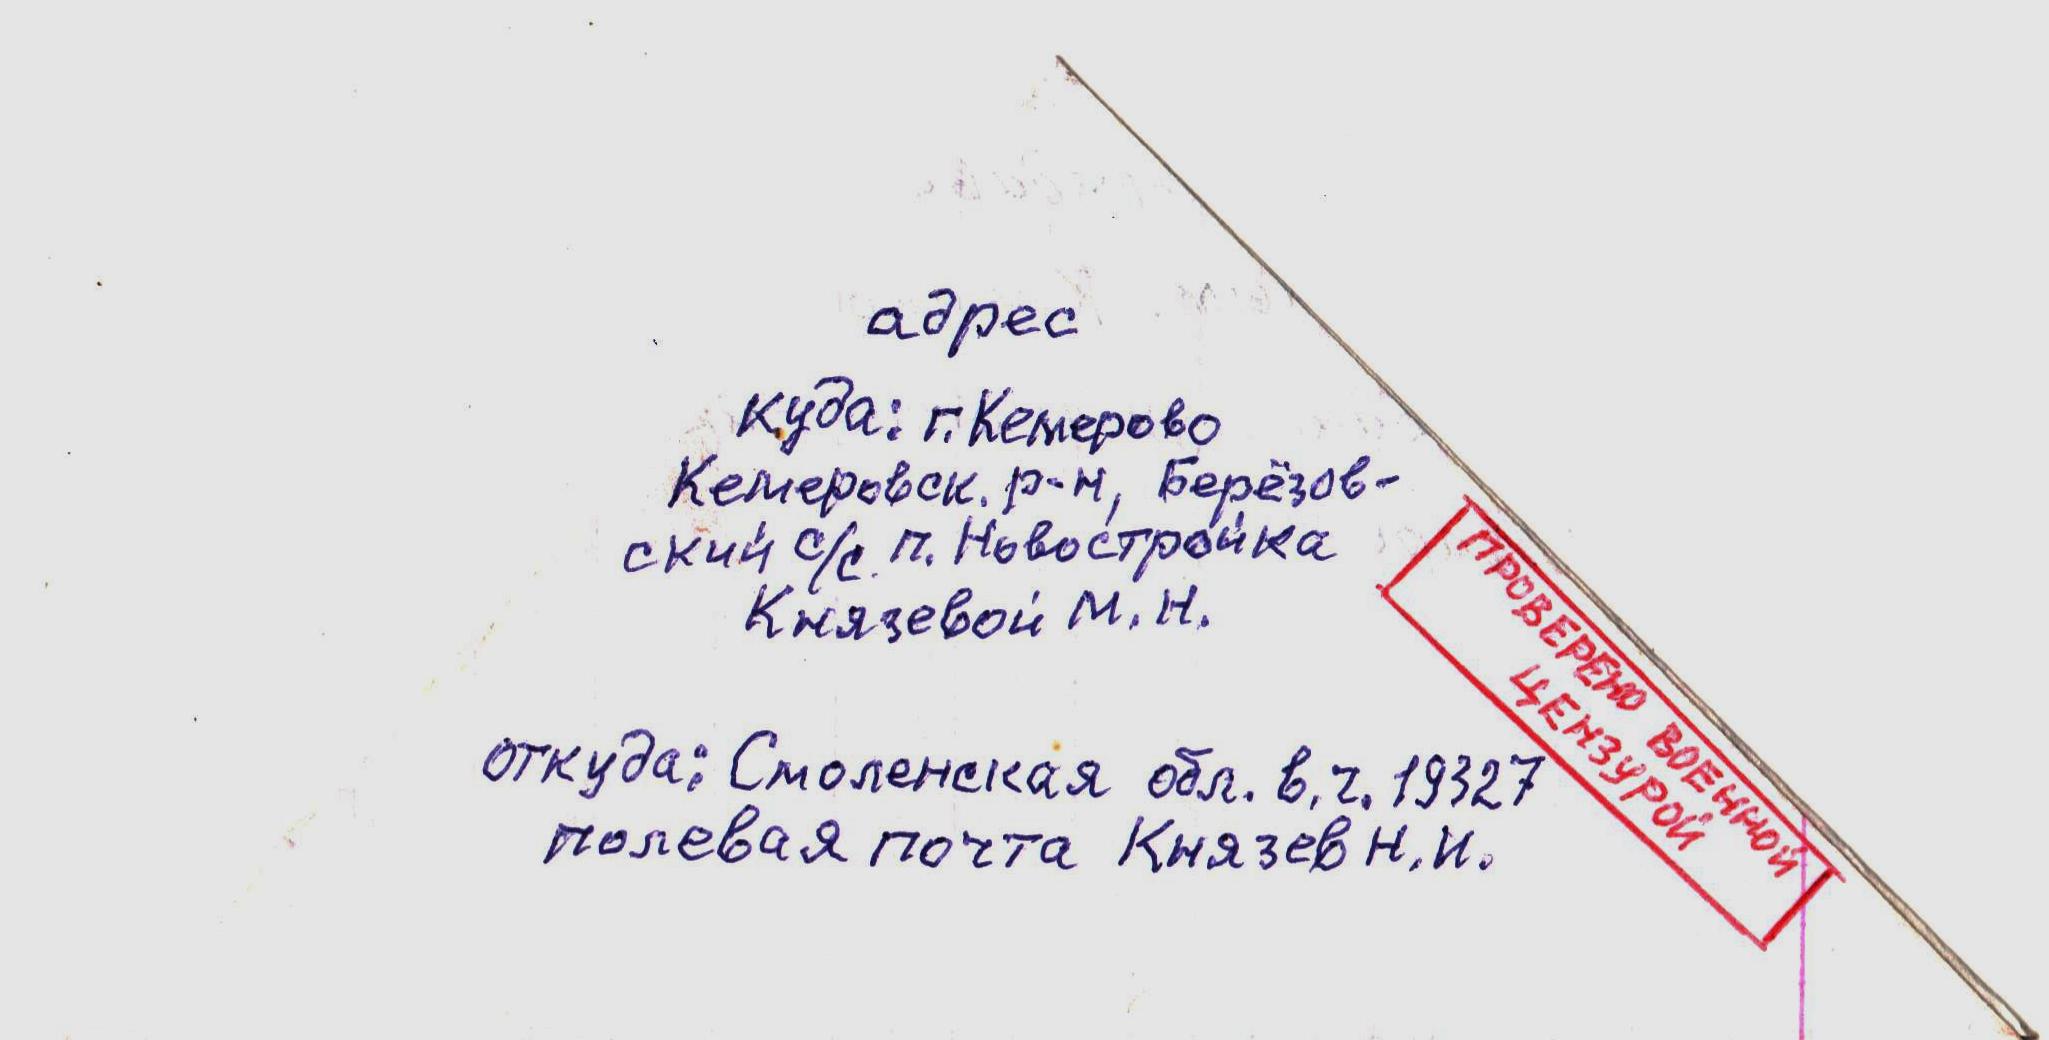 адрес
куда: г. Кемерово
Кемеровск. р-н, Берёзов-
ский с/с. п. Новостройка
Князевой М. Н.
откуда: Смоленская обл. в. ч. 19327
полевая почта Князев Н. И.
ПРОВЕРЕНО ВОЕННОЙ
ЦЕНЗУРОЙ